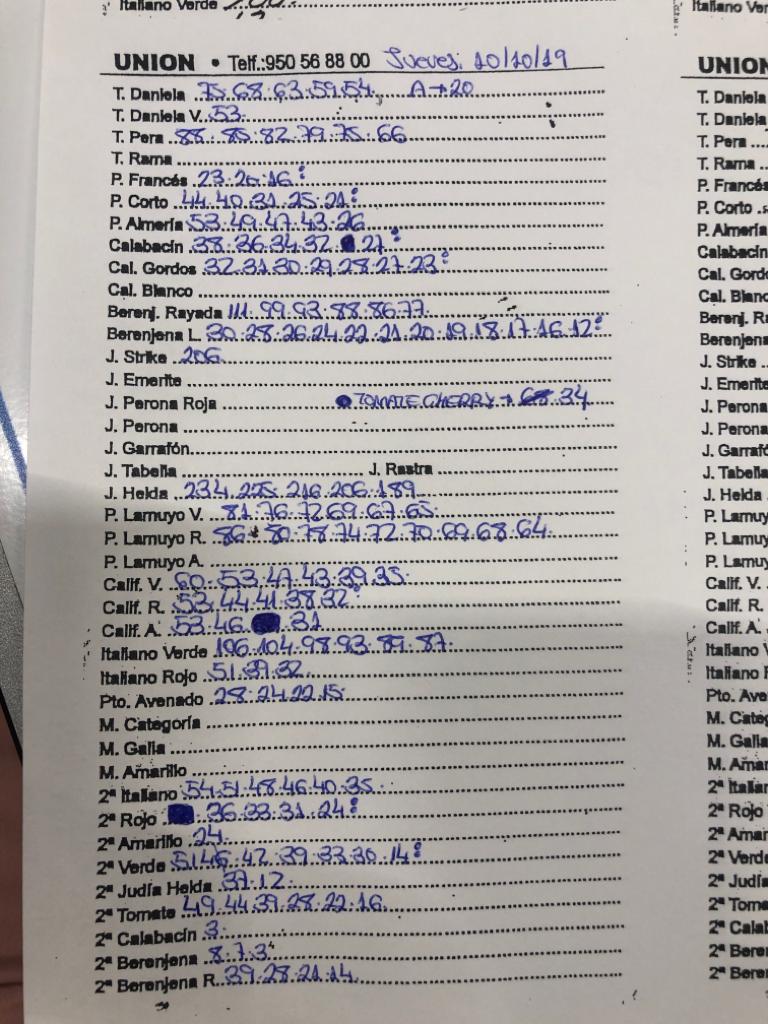 Italiano Verde
UNION • Telf.:950 56 88 00 Jueves: 10/10/19
T. Daniela 75.68.63.59.54. A→20
T. Daniela V. 53.
T. Pera 88.85.82.79.75.66
T. Rama
P. Francés 23.20.16
P. Corto 44.40.31.25.21
P. Almería 53.49.47.43.26
Calabacín 38.36.34.32 27
Cal. Gordos 32.31.30.29.28.27.23
Cal. Blanco
Berenj. Rayada 111.99.93.88.86.77.
Berenjena L. 30.28.26.24.22.21.20.19.18.17.16.12
J. Strike 206
J. Emerite
J. Perona Roja TOMATE CHERRY → 34
J. Perona
J. Garrafón
J. Tabella J. Rastra
J. Helda 234.225.216.206.189
P. Lamuyo V. 81.76.72.69.67.65.
P. Lamuyo R. 86. 80.78.74.72.70.69.68.64.
P. Lamuyo A.
Calif. V. 60.53.47.43.39.35.
Calif. R. 53.44.41.38.32
Calif. A. 53.46. 31
Italiano Verde 104.98.93.89.87.
Italiano Rojo 51.37.32
Pto. Avenado 28.24.22.15
M. Categoría
M. Galia
M. Amarillo
2ª Italiano 54.51.48.46.40.35
2ª Rojo 36.33.31.24
2ª Amarillo 24
2ª Verde 51.46.42.39.33.30.14
2ª Judía Helda 37.12.
2ª Tomate 49.44.39.28.22.16
2ª Calabacín 3.
2ª Berenjena 8.7.3
2ª Berenjena R. 39.28.21.14
Italiano Ver
UNION
T. Daniela
T. Daniela
T. Pera
T. Rama
P. Francés
P. Corto
P. Almería
Calabacín
Cal. Gord
Cal. Blanc
Berenj. R
Berenjena
J. Strike
J. Emerite
J. Perona
J. Perona
J. Garrafó
J. Tabella
J. Helda
P. Lamuy
P. Lamuy
P. Lamuy
Calif. V.
Calif. R.
Calif. A.
Italiano V
Italiano R
Pto. Ave
M. Categ
M. Galia
M. Amar
2ª Italian
2ª Rojo
2ª Amar
2ª Verde
2ª Judía
2ª Toma
2ª Calab
2ª Bere
2ª Bere